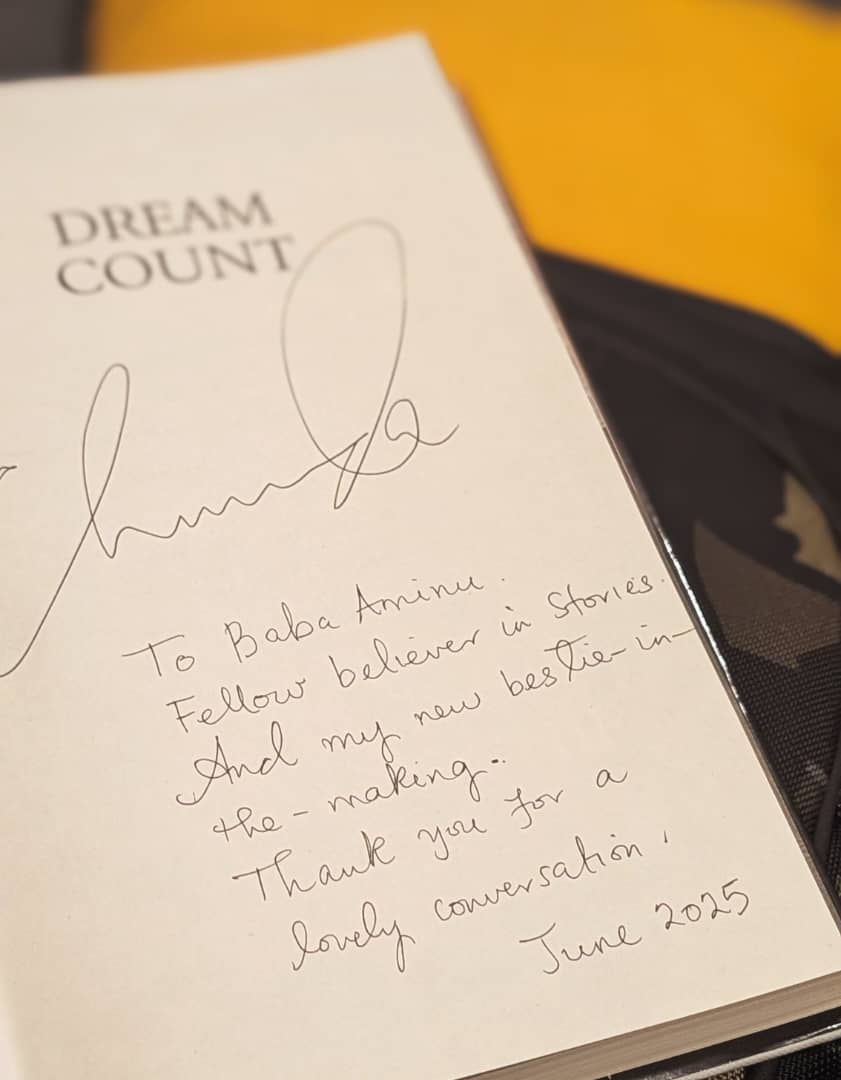 DREAM
COUNT
To Baba Aminu.
Fellow believer in stories.
And my new bestie-in-
the-making.
Thank you for a
lovely conversation.
June 2025